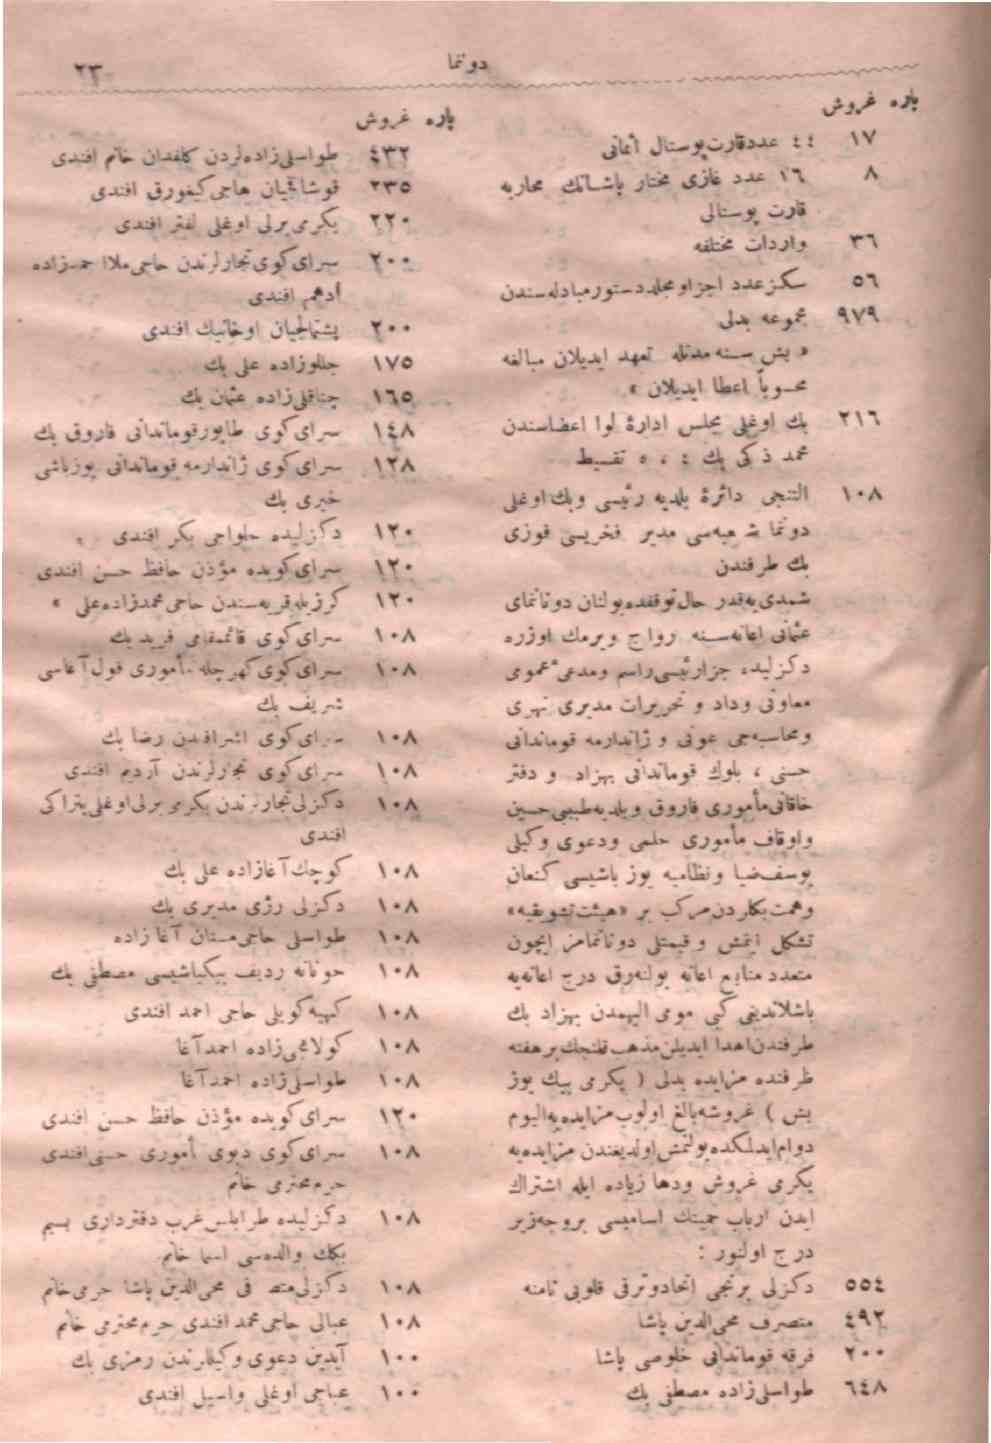 دونما
٢٣
پاره غروش
١٧ ٤٤ عدد قارت پوستال أثمانی
٨ ١٦ عدد غازی مختار پاشانك محاربه
قارت پوستالی
٣٦ واردات مختلفه
٥٦ سكز عدد اجزا و مجلد دستور مبادله سندن
٩٧٩ مجموعه بدلی
« بش سنه مدتله تعهد ایدیلان مبالغه
محسوباً اعطا ایدیلان »
٢١٦ بك اوغلی مجلس ادارهٔ لوا اعضاسندن
محمد ذكی بك ٤ ، ٥ تقسیط
١٠٨ التنجی دائرهٔ بلدیه رئیسی و بك اوغلی
دونما شعبه سی مدیر فخریسی فوزی
بك طرفندن
شمدی یه قدر حال توقفده بولنان دونانمای
عثمانی اعانه سنه رواج ویرمك اوزره
دكزلیده جزا رئیسی راسم و مدعی عمومی
معاونی وداد و تحریرات مدیری نهری
و محاسبه جی عونی و ژاندارمه قوماندانی
حسنی ، بلوك قوماندانی بهزاد و دفتر
خاقانی مأموری فاروق و بلدیه طبیبی حسین
و اوقاف مأموری حلمی و دعوی وكیلی
یوسف ضیا و نظامیه یوز باشیسی كنعان
و همت بكلردن مركب بر «هیئت تشویقیه»
تشكل ایتمش و قیمتلی دونانمامز ایچون
متعدد منابع اعانه بولنه رق درج اعانه یه
باشلاندیغی كبی مومی الیهمدن بهزاد بك
طرفندن اهدا ایدیلن مذهب قلنجك بر هفته
ظرفنده مزایده بدلی ( یكرمی بیك یوز
بش ) غروشه بالغ اولوب مزایده یه الیوم
دوام ایدلمكده بولنمش اولدیغندن مزایده یه
یكرمی غروش و دها زیاده ایله اشتراك
ایدن ارباب حمیتك اسامیسی بر وجه زیر
درج اولنور :
٥٥٤ دكزلی برنجی اتحاد و ترقی قلوبی نامنه
٤٩٢ متصرف محی الدین پاشا
٢٠٠ فرقه قوماندانی خلوصی پاشا
٦٤٨ طواسلی زاده مصطفی بك
پاره غروش
٤٣٢ طواسلی زاده لردن كلفدان خانم افندی
٢٣٥ قوشاقجیان هاجی كیغورق افندی
٢٢٠ یكرمی برلی اوغلی لفتر افندی
٢٠٠ سرای كوی تجارلرندن حاجی ملا احمد زاده
أدهم افندی
٢٠٠ پشتمالجیان اوخانیك افندی
١٧٥ جللو زاده علی بك
١٦٥ چناقلی زاده عثمان بك
١٤٨ سرای كوی طابور قوماندانی فاروق بك
١٢٨ سرای كوی ژاندارمه قوماندانی یوزباشی
خیری بك
١٢٠ دكزلیده حلواجی بكر افندی
١٢٠ سرای كویده مؤذن حافظ حسن افندی
١٢٠ قریه سندن حاجی محمد زاده علی »
١٠٨ سرای كوی قائممقامی فرید بك
١٠٨ سرای كوی مأموری قول آغاسی
شریف بك
١٠٨ سرای كوی اشرافندن رضا بك
١٠٨ سرای كوی تجارلرندن آردیم افندی
١٠٨ دكزلی تجارلرندن یكرمی برلی اوغلی پتراكی
افندی
١٠٨ كوچك آغازاده علی بك
١٠٨ دكزلی رژی مدیری بك
١٠٨ طواسلی حاجی مستان آغا زاده
١٠٨ ردیف بیكباشیسی مصطفی بك
١٠٨ كهیه كویلی حاجی احمد افندی
١٠٨ كولامجی زاده احمد آغا
١٠٨ طواسلی زاده احمد آغا
١٢٠ سرای كویده مؤذن حافظ حسن افندی
١٠٨ سرای كوی دیوی مأموری حسنی افندی
حرم محترمی خانم
١٠٨ دكزلیده طرابلس غرب دفترداری بسیم
بكك والده سی اسما خانم
١٠٨ دكزلی متصرفی محی الدین پاشا حرمی خانم
١٠٨ عبالی حاجی محمد افندی حرم محترمی خانم
١٠٠ آیدین دعوی وكیللرندن رمزی بك
١٠٠ عباجی اوغلی واسیل افندی